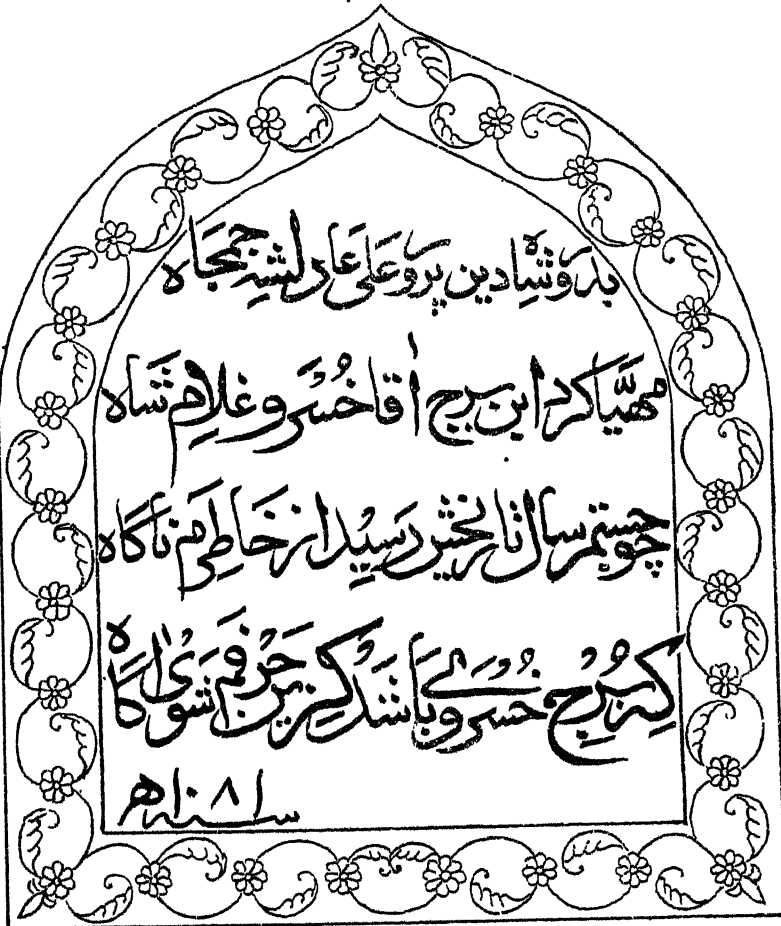 بدور شاه دین پرور علی عادل شه جمجاه
مهیّا کرد این برج آقا خُسرو غلامِ شاه
چو جستم سال تاریخش رسید از خاطرم ناگاه
که برجِ خُسروی باشد کزین حرفم شوی آگاه
سنه ۱۰۸۱ھ